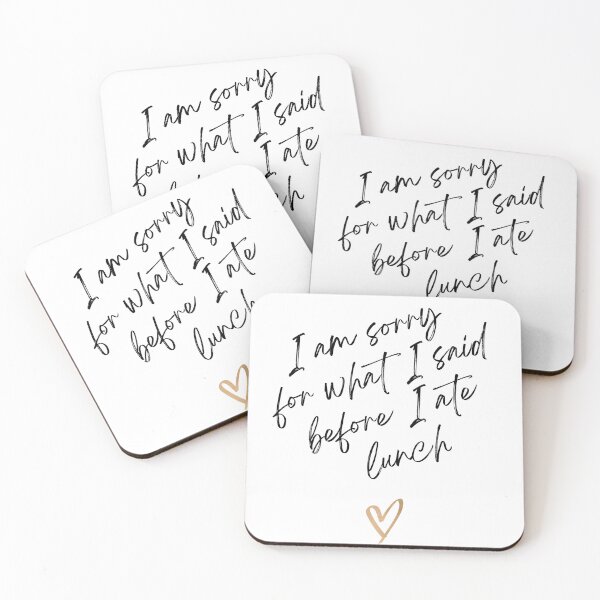 I am sorry
for what I said
before I ate
lunch
I am sorry
for what I said
before I ate
lunch
I am sorry
for what I said
before I ate
lunch
I am sorry
for what I said
before I ate
lunch